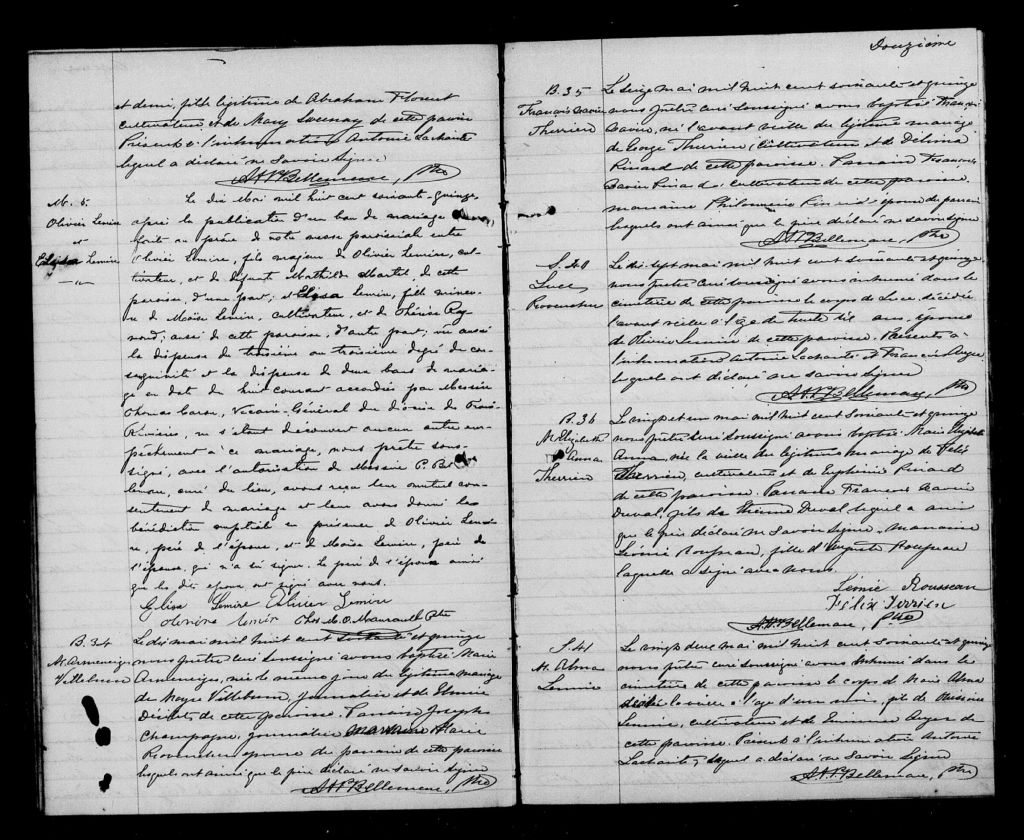 et demi, fille légitime de Abraham Florent
cultivateur et de Mary Sweeney de cette paroisse
Présent à l'inhumation Antoine Lachaite
lequel a déclaré ne Savoir Signer
A.H.V.Bellemare, Ptre
M. 5
Olivier Lemire
et
Elysa Lemire
Le dix Mai mil huit cent soixante-quinze,
après la publication d'un ban de mariage
fait au prône de notre messe paroissiale entre
Olivier Lemire, fils majeur de Olivier Lemire, cul-
tivateur, et de défunte Mathilde Martel de cette
paroisse, d'une part; et Elysa Lemire, fille mineu-
re de Moïse Lemire, cultivateur, et de Thérèse Ray-
mond; aussi de cette paroisse, d'autre part; vu aussi
la dispense du troisième au troisième degré de con-
sanguinité et la dispense de deux bans de maria-
ge en date du huit courant accordées par Messire
Thomas Caron, Vicaire-Général du diocèse des Trois-
Rivières, ne s'étant découvert aucun autre em-
pêchement à ce mariage, nous prêtre sous-
signé, avec l'autorisation de Messire P. Bel
lemare, curé du lieu, avons reçu leur mutuel con-
sentement de mariage et leur avons donné la
bénédiction nuptiale en présence de Olivier Lemi-
re, père de l'époux, et de Moïse Lemire, père de
l'épouse, qui n'a su signer. Le père de l'époux ainsi
que les dits époux ont signé avec nous.
Elisa Lemire Olivier Lemire
Olivier Lemire Chs M. O. Maurault Ptre
B. 34
M. Armenise
Villebrun
Le dix mai mil huit cent soixante et quinze
nous prêtre curé soussigné avons baptisé Marie
née le même jour du légitime mariage
de Moyse Villebrun, journalier et de
de cette paroisse. Parrain Joseph
Champagne, journalier marraine Marie
épouse du parrain de cette paroisse
lesquels ont ainsi que le père déclaré ne savoir signer
A.H.V.Bellemare, Ptre
Douzième
B. 35
François Xavier
Therrien
Le seize mai mil huit cent soixante-et-quinze
nous prêtre curé soussigné avons baptisé François
Xavier, né l'avant veille du légitime mariage
de George Therrien, cultivateur et de Délima
Pinard de cette paroisse. Parrain François
Xavier Pinard, cultivateur de cette paroisse.
marraine Philomène Pinard épouse du parrain
lesquels ont ainsi que le père déclaré ne savoir signer
A.H.V.Bellemare, Ptre
S. 40
Luce
Le dix-sept mai mil huit cent soixante-et-quinze
nous prêtre curé soussigné avons inhumé dans le
cimetière de cette paroisse le corps de Luce décédée
l'avant veille à l'âge de trente ans, épouse
de Olivier Lemire de cette paroisse. Présents à
l'inhumation Antoine Lachaite et François Auger
lesquels ont déclaré ne savoir signer
A.H.V.Bellemare, Ptre
B. 36
M. Elizabeth
Anna
Therrien
Le vingt et un mai mil huit cent soixante-et-quinze
nous prêtre curé soussigné avons baptisé Marie Elizabeth
Anna, née la veille du légitime mariage de Félix
Therrien, cultivateur et de Euphémie Pinard
de cette paroisse. Parrain François Xavier
Duval, fils de Etienne Duval lequel a ainsi
que le père déclaré ne savoir signer, marraine
Léonie Rousseau, fille d'Auguste Rousseau
laquelle a signé avec nous.
Léonie Rousseau
Félix Terrien
A.H.V.Bellemare, Ptre
S. 41
M. Alma
Lemire
Le vingt deux mai mil huit cent soixante-et-quinze
nous prêtre curé soussigné avons inhumé dans le
cimetière de cette paroisse le corps de Marie Alma
décédée la veille à l'âge d'un mois, fille de Onésime
Lemire, cultivateur et de Auger de
cette paroisse. Présent à l'inhumation Antoine
Lachaite, lequel a déclaré ne Savoir Signer
A.H.V.Bellemare, Ptre